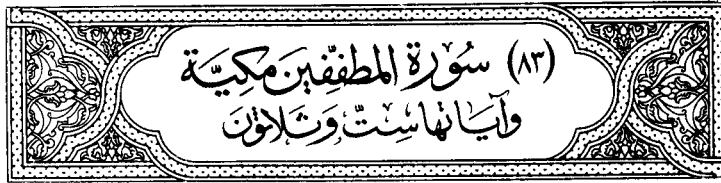 (٨٣) سُورَة المطفّفِين مَكيَّة
وَآيَاتهَا سِتٌّ وَثَلَاثُونَ